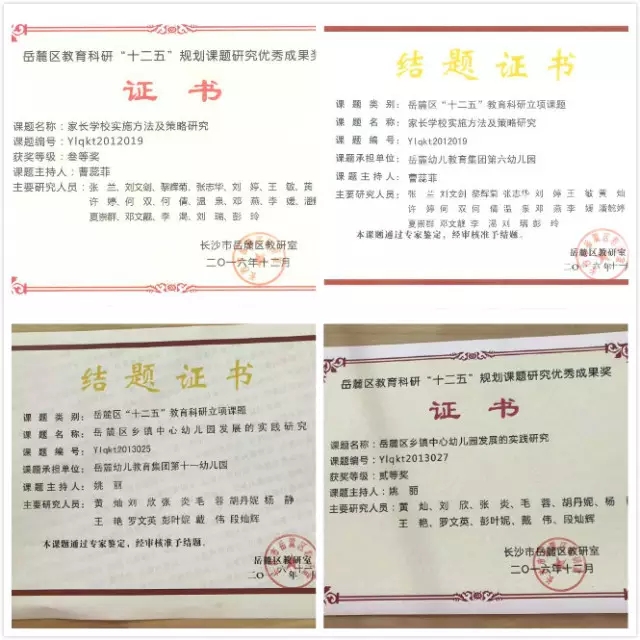 岳麓区教育科研“十二五”规划课题研究优秀成果奖
证 书
课题名称：家长学校实施方法及策略研究
课题编号：Ylqkt2012019
获奖等级：叁等奖
课题主持人：曹蕊菲
主要研究人员：张 兰、刘文剑、黎辉菊、张志华、刘 婷、王 敏、黄
许 婷、何 双、何 倩、温 泉、邓 燕、李 媛、潘
夏崇群、邓文靓、李 渴、刘 瑞、彭 玲
长沙市岳麓区教研室
二〇一六年十二月
结 题 证 书
课 题 类 别：岳麓区“十二五”教育科研立项课题
课 题 名 称：家长学校实施方法及策略研究
课 题 编 号：Ylqkt2012019
课题承担单位：岳麓幼儿教育集团第六幼儿园
课 题 主 持 人：曹蕊菲
主要研究人员：张 兰 刘文剑 黎辉菊 张志华 刘 婷 王 敏 黄 灿
许 婷 何 双 何 倩 温 泉 邓 燕 李 媛 潘 婷
夏崇群 邓文靓 李 渴 刘 瑞 彭 玲
本课题通过专家鉴定，经审核准予结题。
长沙市岳麓区教研室
二〇一六年十一
结 题 证 书
课 题 类 别：岳麓区“十二五”教育科研立项课题
课 题 名 称：岳麓区乡镇中心幼儿园发展的实践研究
课 题 编 号：Ylqkt2013025
课题承担单位：岳麓幼儿教育集团第十一幼儿园
课 题 主 持 人：姚 丽
主要研究人员：黄 灿 刘 欣 张 炎 毛 蓉 胡丹妮 杨 静
王 艳 罗文英 彭叶妮 戴 伟 段灿辉
本课题通过专家鉴定，经审核准予结题。
长沙市岳麓区教研室
二〇一六年十二
岳麓区教育科研“十二五”规划课题研究优秀成果奖
证 书
课题名称：岳麓区乡镇中心幼儿园发展的实践研究
课题编号：Ylqkt2013027
获奖等级：贰等奖
课题主持人：姚 丽
主要研究人员：黄 灿、刘 欣、张 炎、毛 蓉、胡丹妮、杨
王 艳、罗文英、彭叶妮、戴 伟、段灿辉
长沙市岳麓区教研室
二〇一六年十二月